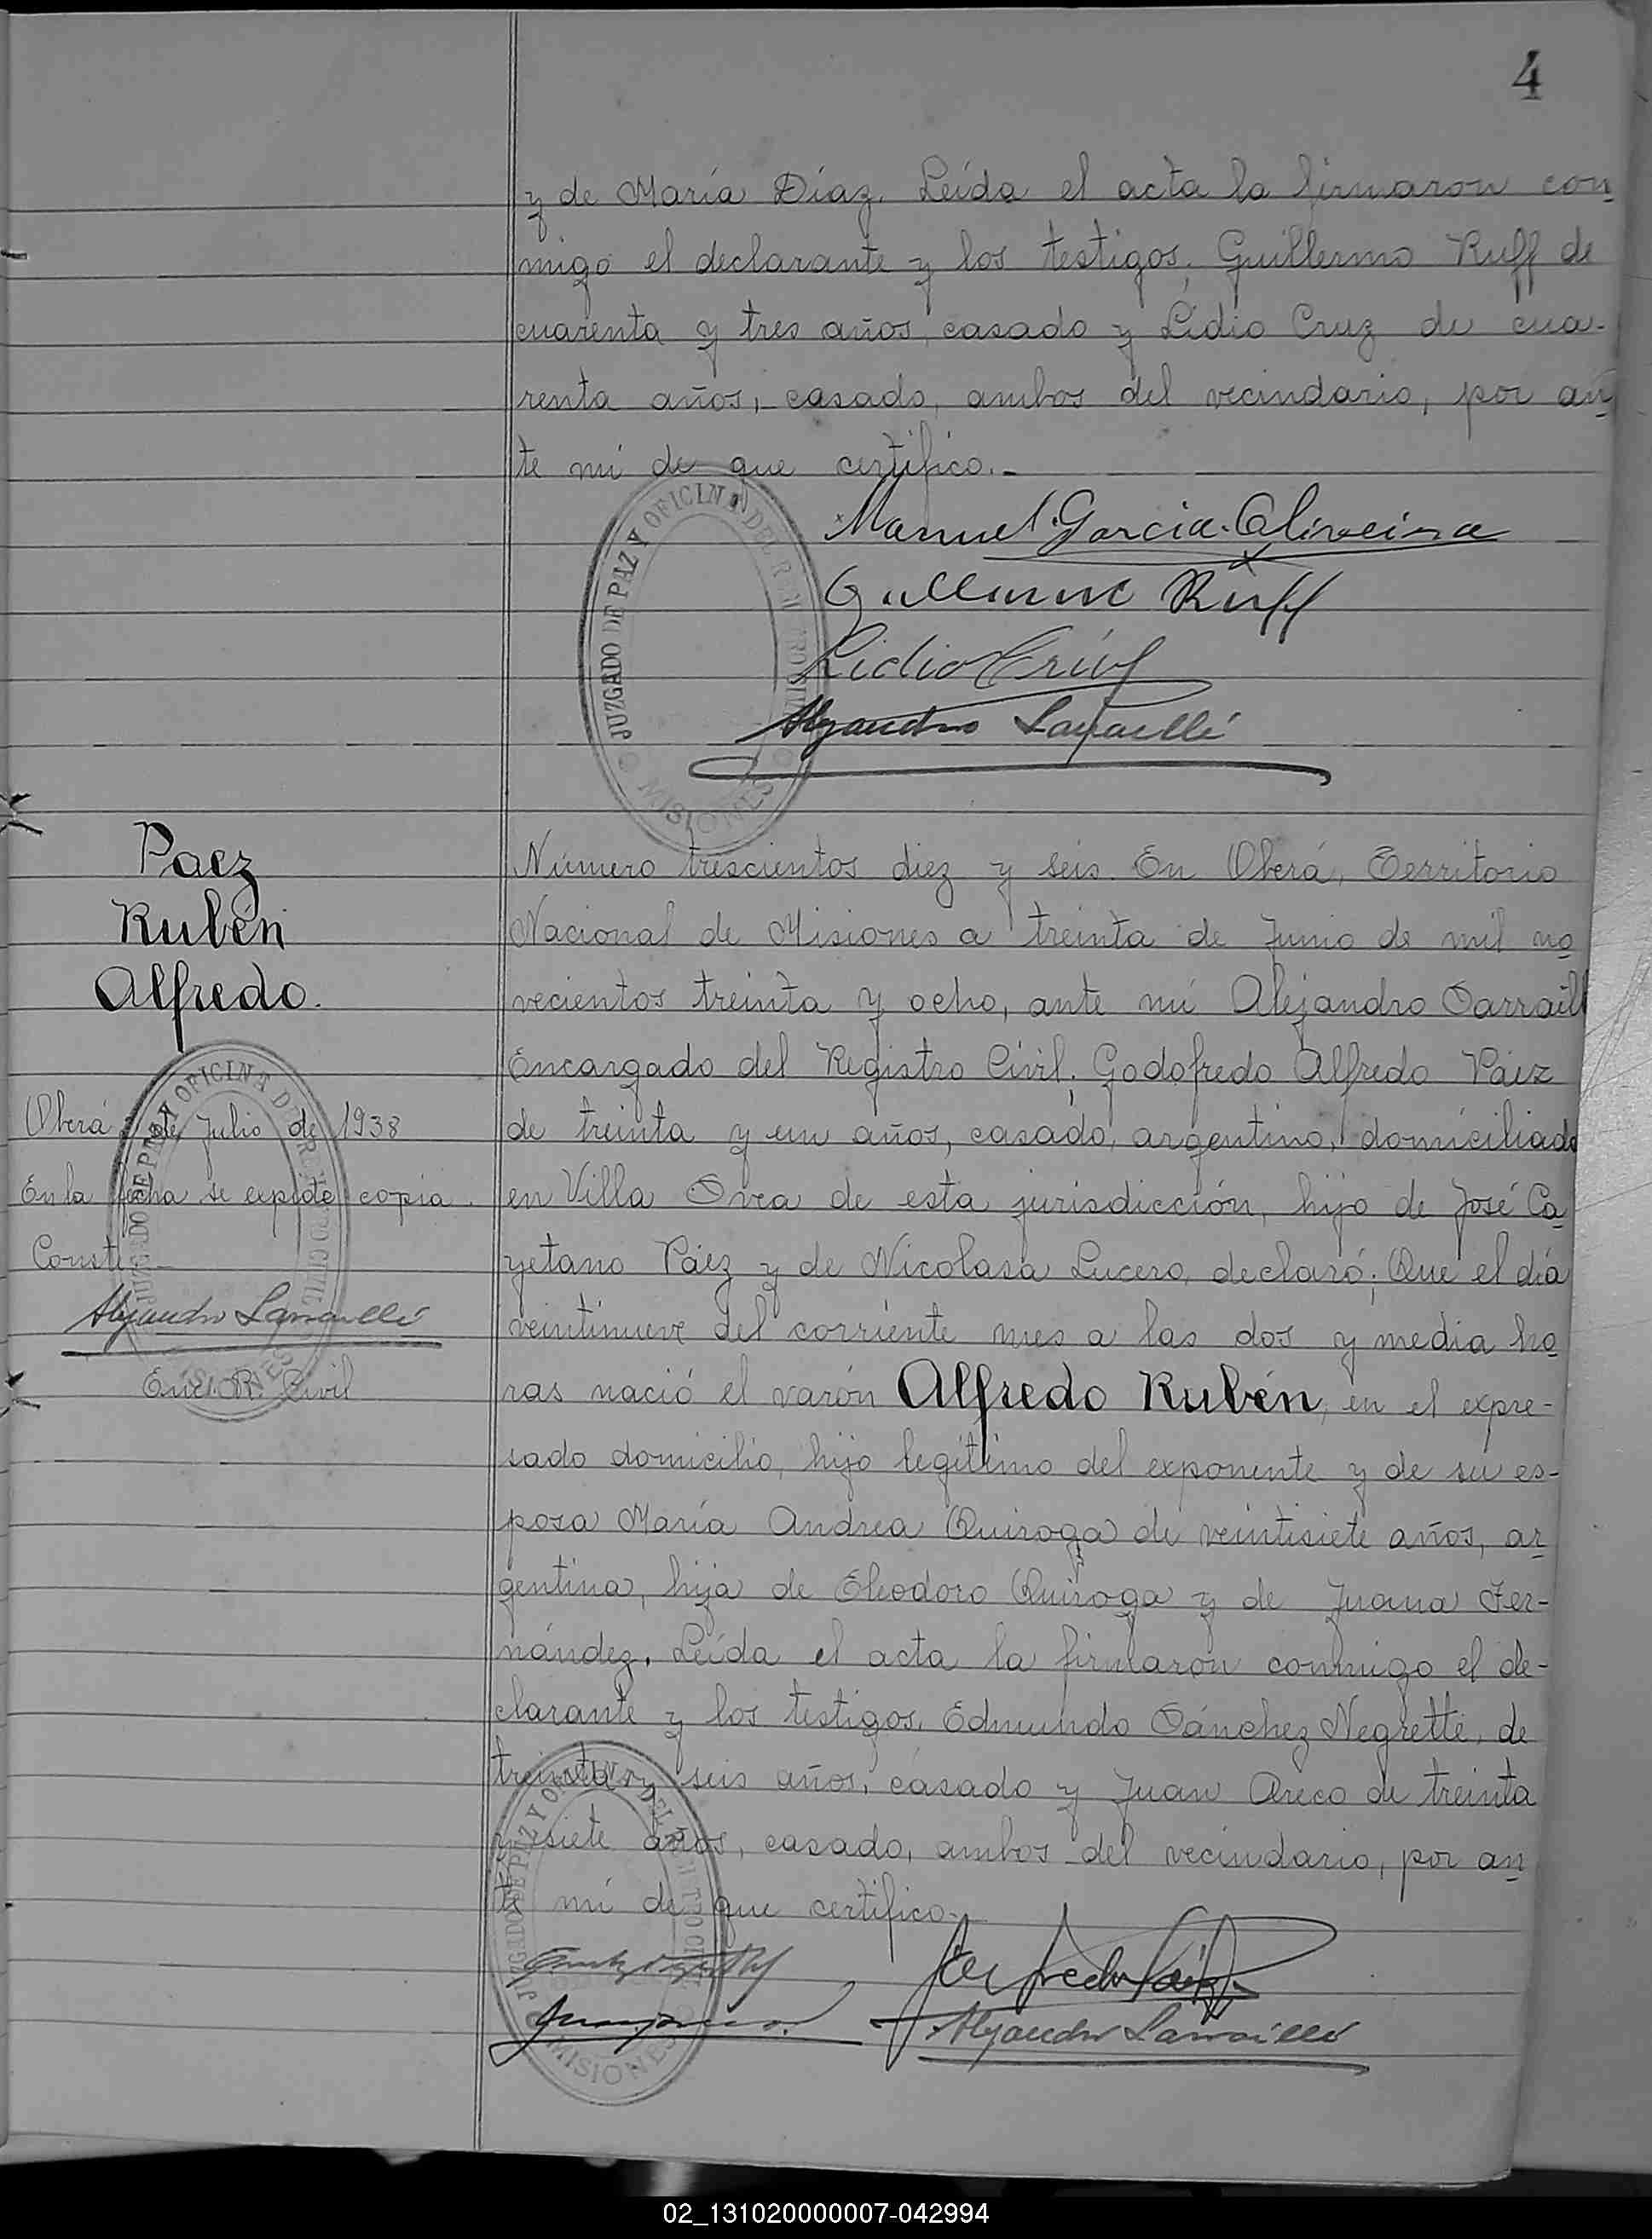 4
y de María Díaz. Leída el acta la firmaron con
migo el declarante y los testigos, Guillermo Ruff de
cuarenta y tres años, casado y Lidio Cruz de cua-
renta años, casado, ambos del vecindario, por an
te mi de que certifico.-
JUZGADO DE PAZ Y OFICINA DEL REGISTRO CIVIL
MISIONES
Manuel Garcia Oliveira
Guillermo Ruff
Lidio Crúz
Alejandro Sarraillé
Paez
Rubén
Alfredo.
Oberá de Julio de 1938
En la fecha se expide copia.
Conste
Alejandro Sarraillé
Enc. R. Civil
JUZGADO DE PAZ Y OFICINA DEL REGISTRO CIVIL
MISIONES
Número trescientos diez y seis. En Oberá, Territorio
Nacional de Misiones a treinta de Junio de mil no
vecientos treinta y ocho, ante mí Alejandro Sarraillé
Encargado del Registro Civil, Godofredo Alfredo Páez
de treinta y un años, casado, argentino, domiciliado
en Villa Svea de esta jurisdicción, hijo de José Ca
yetano Páez y de Nicolasa Lucero, declaró; Que el día
veintinueve del corriente mes a las dos y media ho
ras nació el varón Alfredo Rubén, en el expre-
sado domicilio, hijo legítimo del exponente y de su es-
posa María Andrea Quiroga de veintisiete años, ar
gentina, hija de Eleodoro Quiroga y de Juana Fer-
nández. Leída el acta la firmaron conmigo el de-
clarante y los testigos, Edmundo Sánchez Negrette, de
treinta y seis años, casado y Juan Areco de treinta
y siete años, casado, ambos del vecindario, por an
te mí de que certifico.-
JUZGADO DE PAZ Y OFICINA DEL REGISTRO CIVIL
MISIONES
Alejandro Sarraillé
02_131020000007-042994